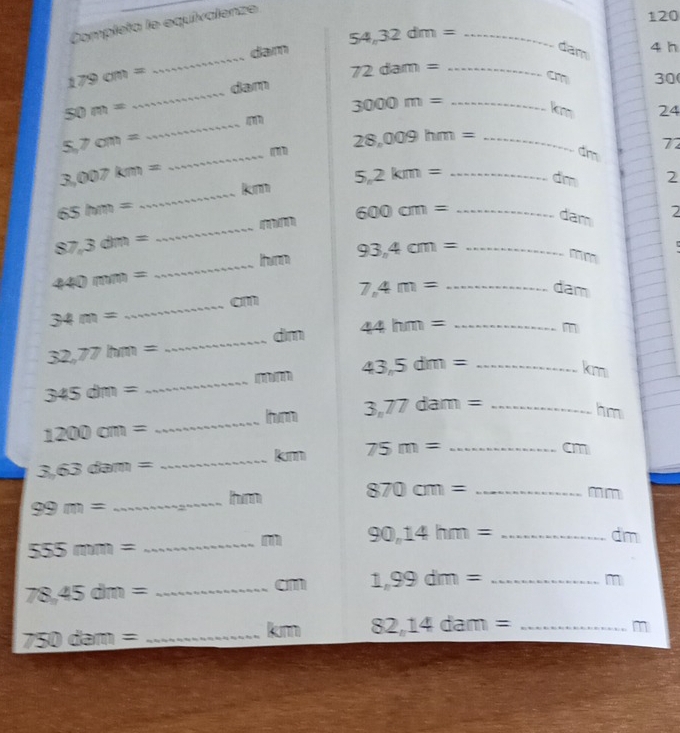 Completa le equivalenze
179 cm = ............ dam
50 m = ............ dam
5,7 cm = ............ m
3,007 km = ............ m
65 hm = ............ km
87,3 dm = ............ mm
440 mm = ............ hm
34 m = ............ cm
32,77 hm = ............ dm
345 dm = ............ mm
1200 cm = ............ hm
3,63 dam = ............ km
99 m = ............ hm
555 mm = ............ m
78,45 dm = ............ cm
750 dam = ............ km
54,32 dm = ............ dam
72 dam = ............ cm
3000 m = ............ km
28,009 hm = ............ dm
5,2 km = ............ dm
600 cm = ............ dam
93,4 cm = ............ mm
7,4 m = ............ dam
44 hm = ............ m
43,5 dm = ............ km
3,77 dam = ............ hm
75 m = ............ cm
870 cm = ............ mm
90,14 hm = ............ dm
1,99 dm = ............ m
82,14 dam = ............ m
120
4 h
30
24
72
2
2